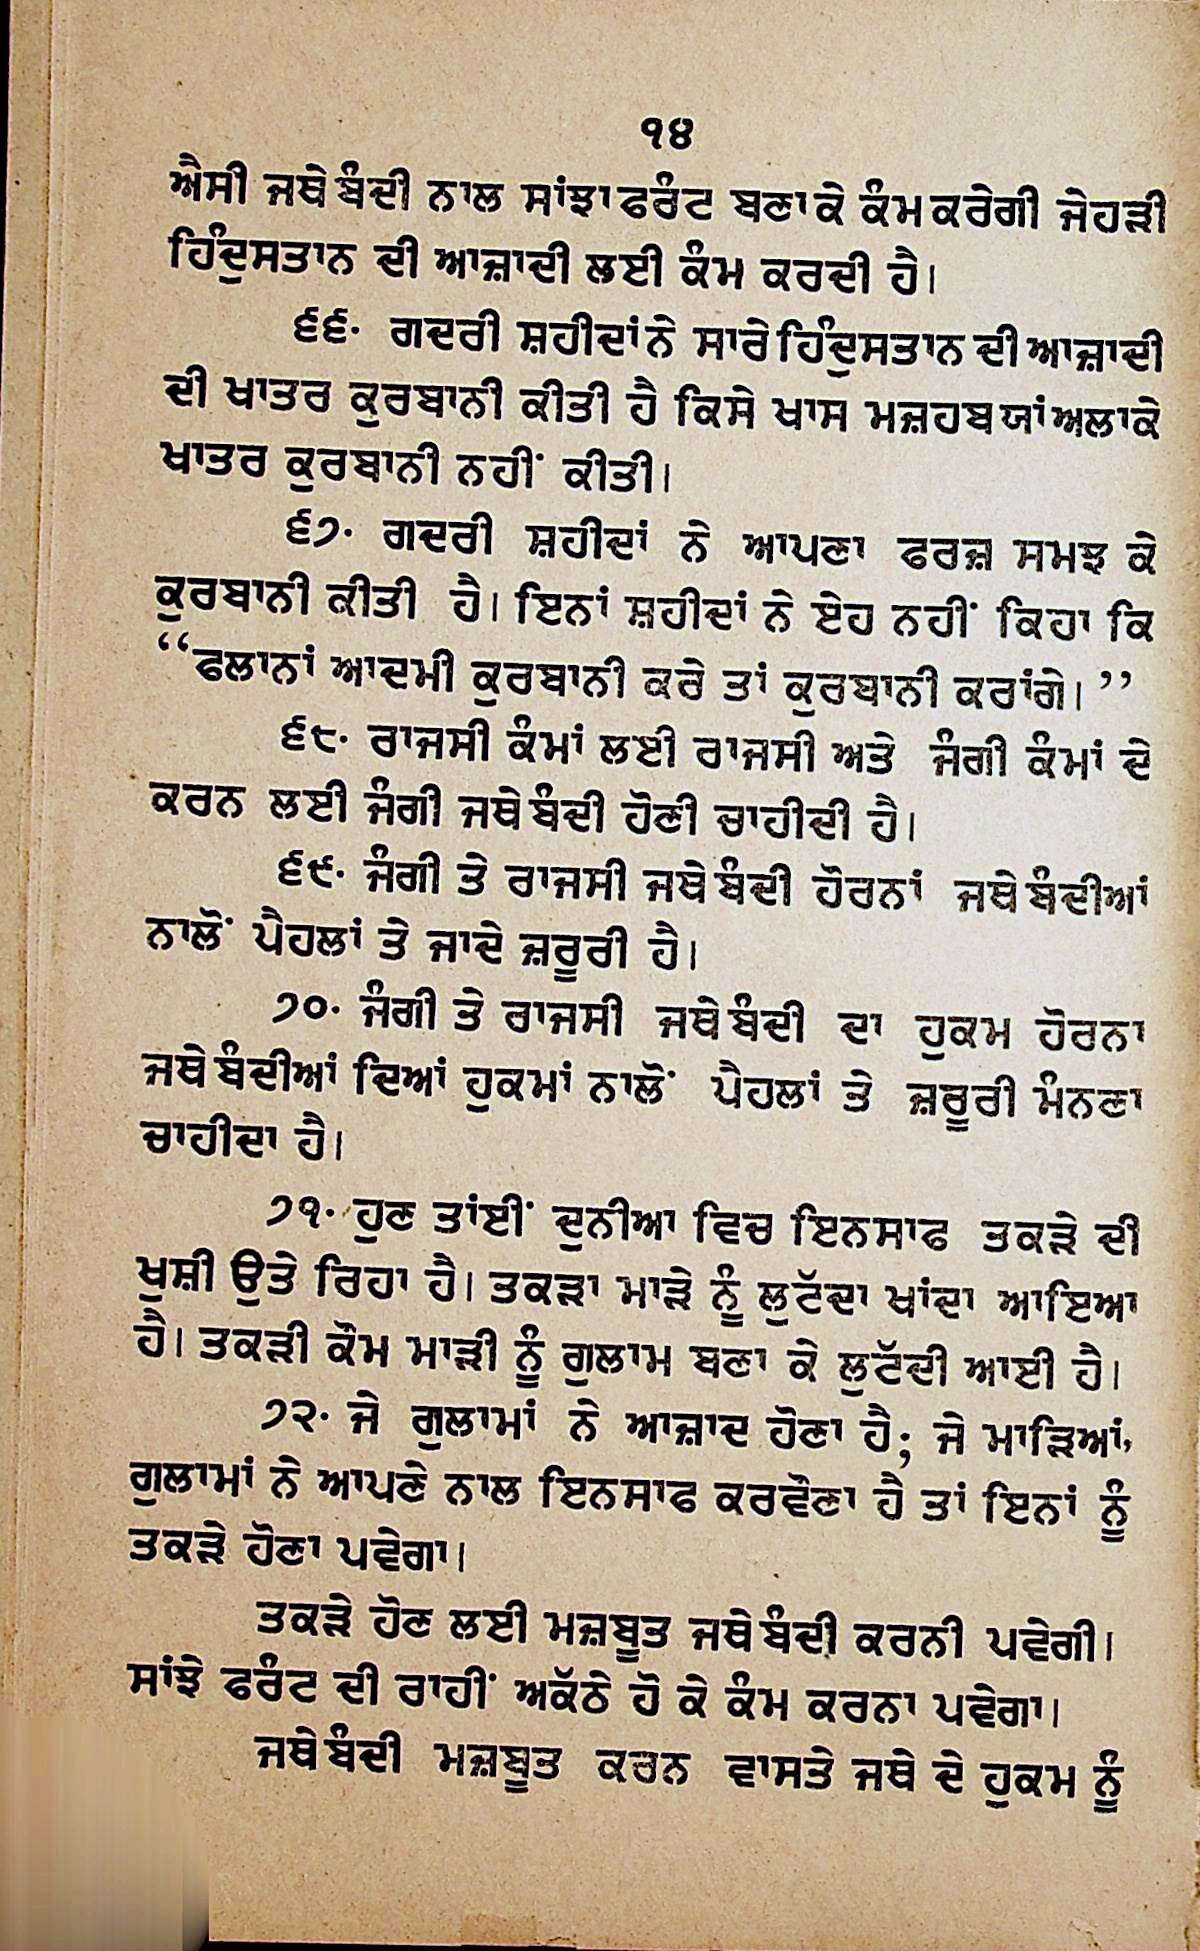 ੧੪
ਐਸੀ ਜਥੇਬੰਦੀ ਨਾਲ ਸਾਂਝਾ ਫਰੰਟ ਬਣਾ ਕੇ ਕੰਮ ਕਰੇਗੀ ਜੇਹੜੀ
ਹਿੰਦੁਸਤਾਨ ਦੀ ਆਜ਼ਾਦੀ ਲਈ ਕੰਮ ਕਰਦੀ ਹੈ।
੬੬. ਗਦਰੀ ਸ਼ਹੀਦਾਂ ਨੇ ਸਾਰੇ ਹਿੰਦੁਸਤਾਨ ਦੀ ਆਜ਼ਾਦੀ
ਦੀ ਖਾਤਰ ਕੁਰਬਾਨੀ ਕੀਤੀ ਹੈ ਕਿਸੇ ਖਾਸ ਮਜ਼ਹਬ ਯਾਂ ਅਲਾਕੇ
ਖਾਤਰ ਕੁਰਬਾਨੀ ਨਹੀਂ ਕੀਤੀ।
੬੭. ਗਦਰੀ ਸ਼ਹੀਦਾਂ ਨੇ ਆਪਣਾ ਫਰਜ਼ ਸਮਝ ਕੇ
ਕੁਰਬਾਨੀ ਕੀਤੀ ਹੈ। ਇਨਾਂ ਸ਼ਹੀਦਾਂ ਨੇ ਏਹ ਨਹੀਂ ਕਿਹਾ ਕਿ
“ਫਲਾਨਾਂ ਆਦਮੀ ਕੁਰਬਾਨੀ ਕਰੇ ਤਾਂ ਕੁਰਬਾਨੀ ਕਰਾਂਗੇ।”
੬੮. ਰਾਜਸੀ ਕੰਮਾਂ ਲਈ ਰਾਜਸੀ ਅਤੇ ਜੰਗੀ ਕੰਮਾਂ ਦੇ
ਕਰਨ ਲਈ ਜੰਗੀ ਜਥੇਬੰਦੀ ਹੋਣੀ ਚਾਹੀਦੀ ਹੈ।
੬੯. ਜੰਗੀ ਤੇ ਰਾਜਸੀ ਜਥੇਬੰਦੀ ਹੋਰਨਾਂ ਜਥੇਬੰਦੀਆਂ
ਨਾਲੋਂ ਪੈਹਲਾਂ ਤੇ ਜਾਦੇ ਜ਼ਰੂਰੀ ਹੈ।
੭੦. ਜੰਗੀ ਤੇ ਰਾਜਸੀ ਜਥੇਬੰਦੀ ਦਾ ਹੁਕਮ ਹੋਰਨਾ
ਜਥੇਬੰਦੀਆਂ ਦਿਆਂ ਹੁਕਮਾਂ ਨਾਲੋਂ ਪੈਹਲਾਂ ਤੇ ਜ਼ਰੂਰੀ ਮੰਨਣਾ
ਚਾਹੀਦਾ ਹੈ।
੭੧. ਹੁਣ ਤਾਂਈਂ ਦੁਨੀਆ ਵਿਚ ਇਨਸਾਫ ਤਕੜੇ ਦੀ
ਖੁਸ਼ੀ ਉਤੇ ਰਿਹਾ ਹੈ। ਤਕੜਾ ਮਾੜੇ ਨੂੰ ਲੁਟੱਦਾ ਖਾਂਦਾ ਆਇਆ
ਹੈ। ਤਕੜੀ ਕੌਮ ਮਾੜੀ ਨੂੰ ਗੁਲਾਮ ਬਣਾ ਕੇ ਲੁਟੱਦੀ ਆਈ ਹੈ।
੭੨. ਜੇ ਗੁਲਾਮਾਂ ਨੇ ਆਜ਼ਾਦ ਹੋਣਾ ਹੈ; ਜੇ ਮਾੜਿਆਂ,
ਗੁਲਾਮਾਂ ਨੇ ਆਪਣੇ ਨਾਲ ਇਨਸਾਫ ਕਰਵੌਣਾ ਹੈ ਤਾਂ ਇਨਾਂ ਨੂੰ
ਤਕੜੇ ਹੋਣਾ ਪਵੇਗਾ।
ਤਕੜੇ ਹੋਣ ਲਈ ਮਜ਼ਬੂਤ ਜਥੇਬੰਦੀ ਕਰਨੀ ਪਵੇਗੀ।
ਸਾਂਝੇ ਫਰੰਟ ਦੀ ਰਾਹੀਂ ਅਕੱਠੇ ਹੋ ਕੇ ਕੰਮ ਕਰਨਾ ਪਵੇਗਾ।
ਜਥੇਬੰਦੀ ਮਜ਼ਬੂਤ ਕਰਨ ਵਾਸਤੇ ਜਥੇ ਦੇ ਹੁਕਮ ਨੂੰ